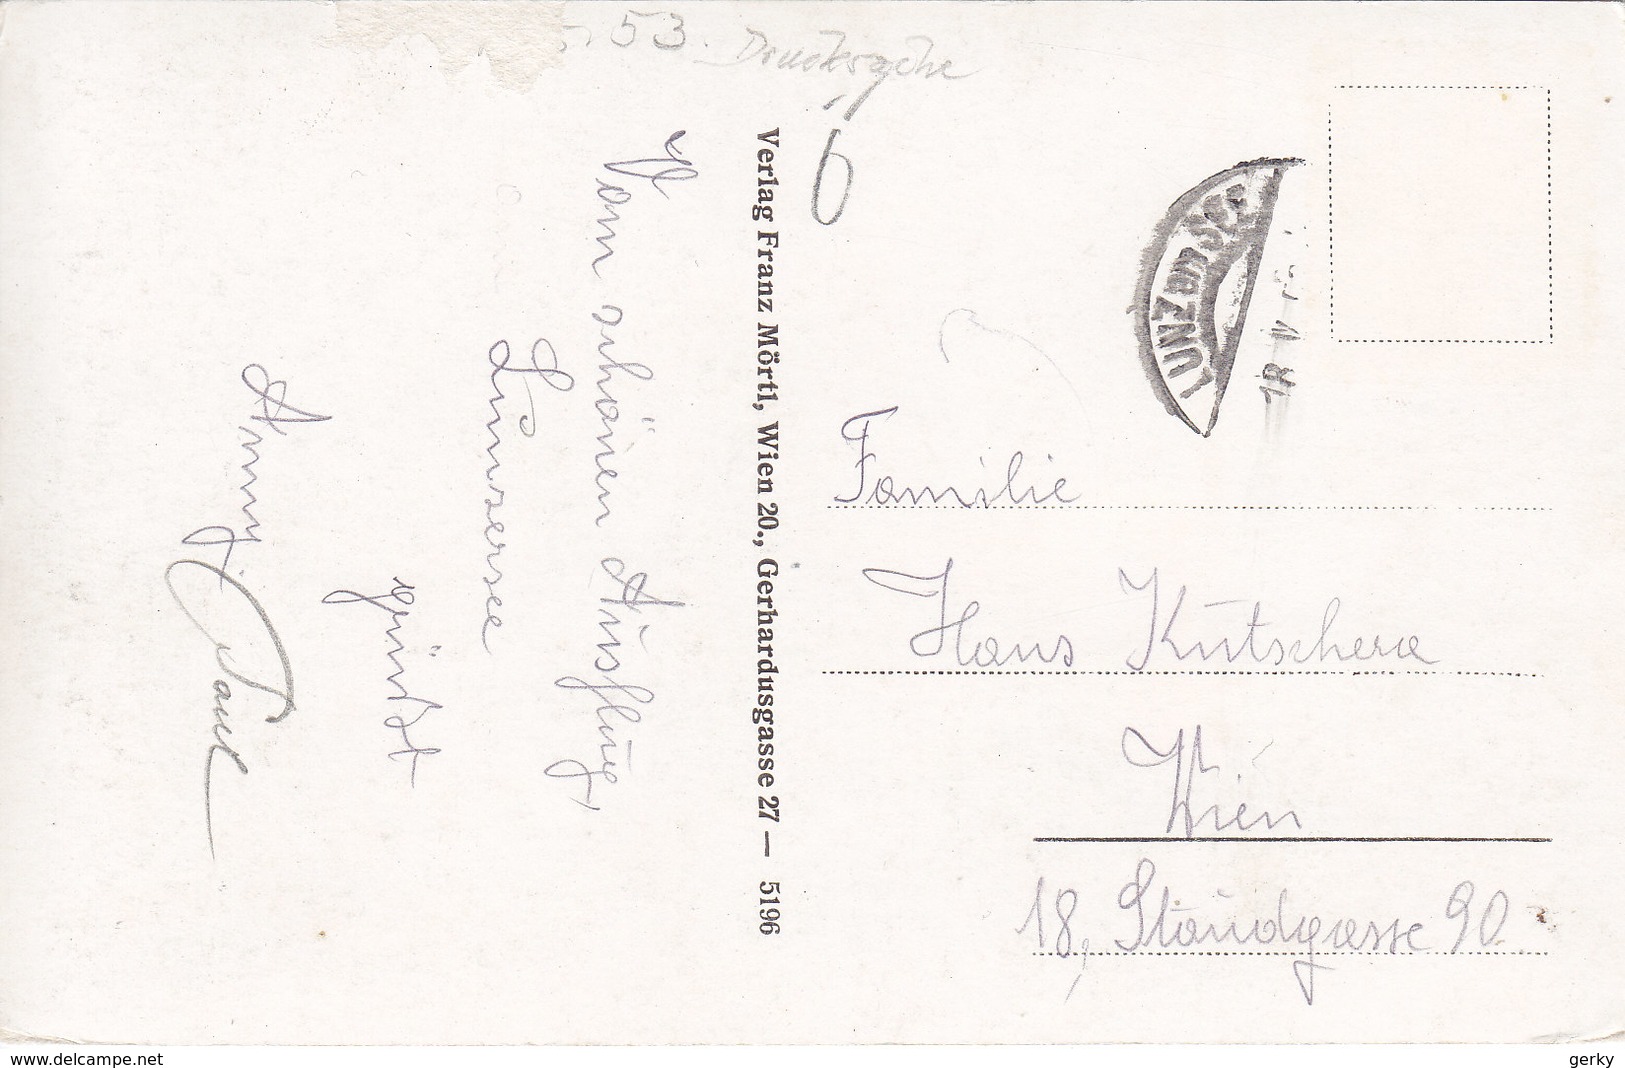 53. Drucksache
6
Vom schönen Ausflug,
Lunzersee
grüßt
Anny
Paul
Verlag Franz Mörtl, Wien 20., Gerhardusgasse 27 — 5196
LUNZ am SEE
Familie
Hans Kutschera
Wien
18, Staudgasse 90
www.delcampe.net
gerky